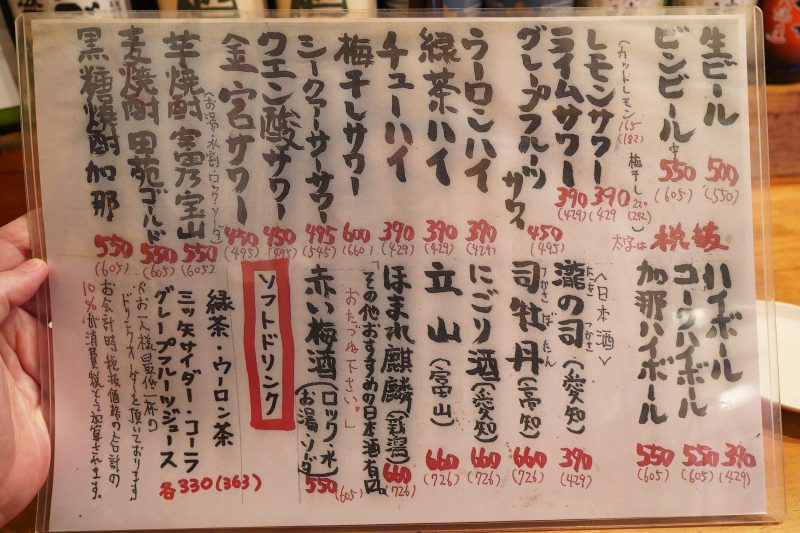 生ビール 500 (550)
ビンビール中 550 (605)
レモンサワー 390 (429)
(カットレモン 165 (182) 梅干し 220 (242))
ライムサワー 390 (429)
グレープフルーツサワー 450 (495)
ウーロンハイ 390 (429)
緑茶ハイ 390 (429)
チューハイ 390 (429)
梅干しサワー 600 (660)
シークァーサーサワー 495 (545)
クエン酸サワー 450 (495)
金宮サワー 450 (495)
(お湯・水割・ロック・ソーダ)
芋焼酎 富乃宝山 550 (605)
麦焼酎 田苑ゴールド 550 (605)
黒糖焼酎 加那 550 (605)
太字は税抜
ハイボール 390 (429)
コークハイボール 550 (605)
加那ハイボール 550 (605)
<日本酒>
瀧の司 (愛知) 390 (429)
たき つかさ
司牡丹 (高知) 660 (726)
つかさ ぼたん
にごり酒 (愛知) 660 (726)
立山 (富山) 660 (726)
ほまれ麒麟 (新潟) 660 (726)
その他おすすめの日本酒有〼。
おたづね下さい。」
赤い梅酒 (ロック・水・お湯・ソーダ) 550 (605)
ソフトドリンク
緑茶・ウーロン茶
三ッ矢サイダー・コーラ
グレープフルーツジュース
各330 (363)
お一人様最低一杯の
ドリンクオーダーを頂いております。
お会計時税抜価格の合計の
10%が消費税として加算されます。